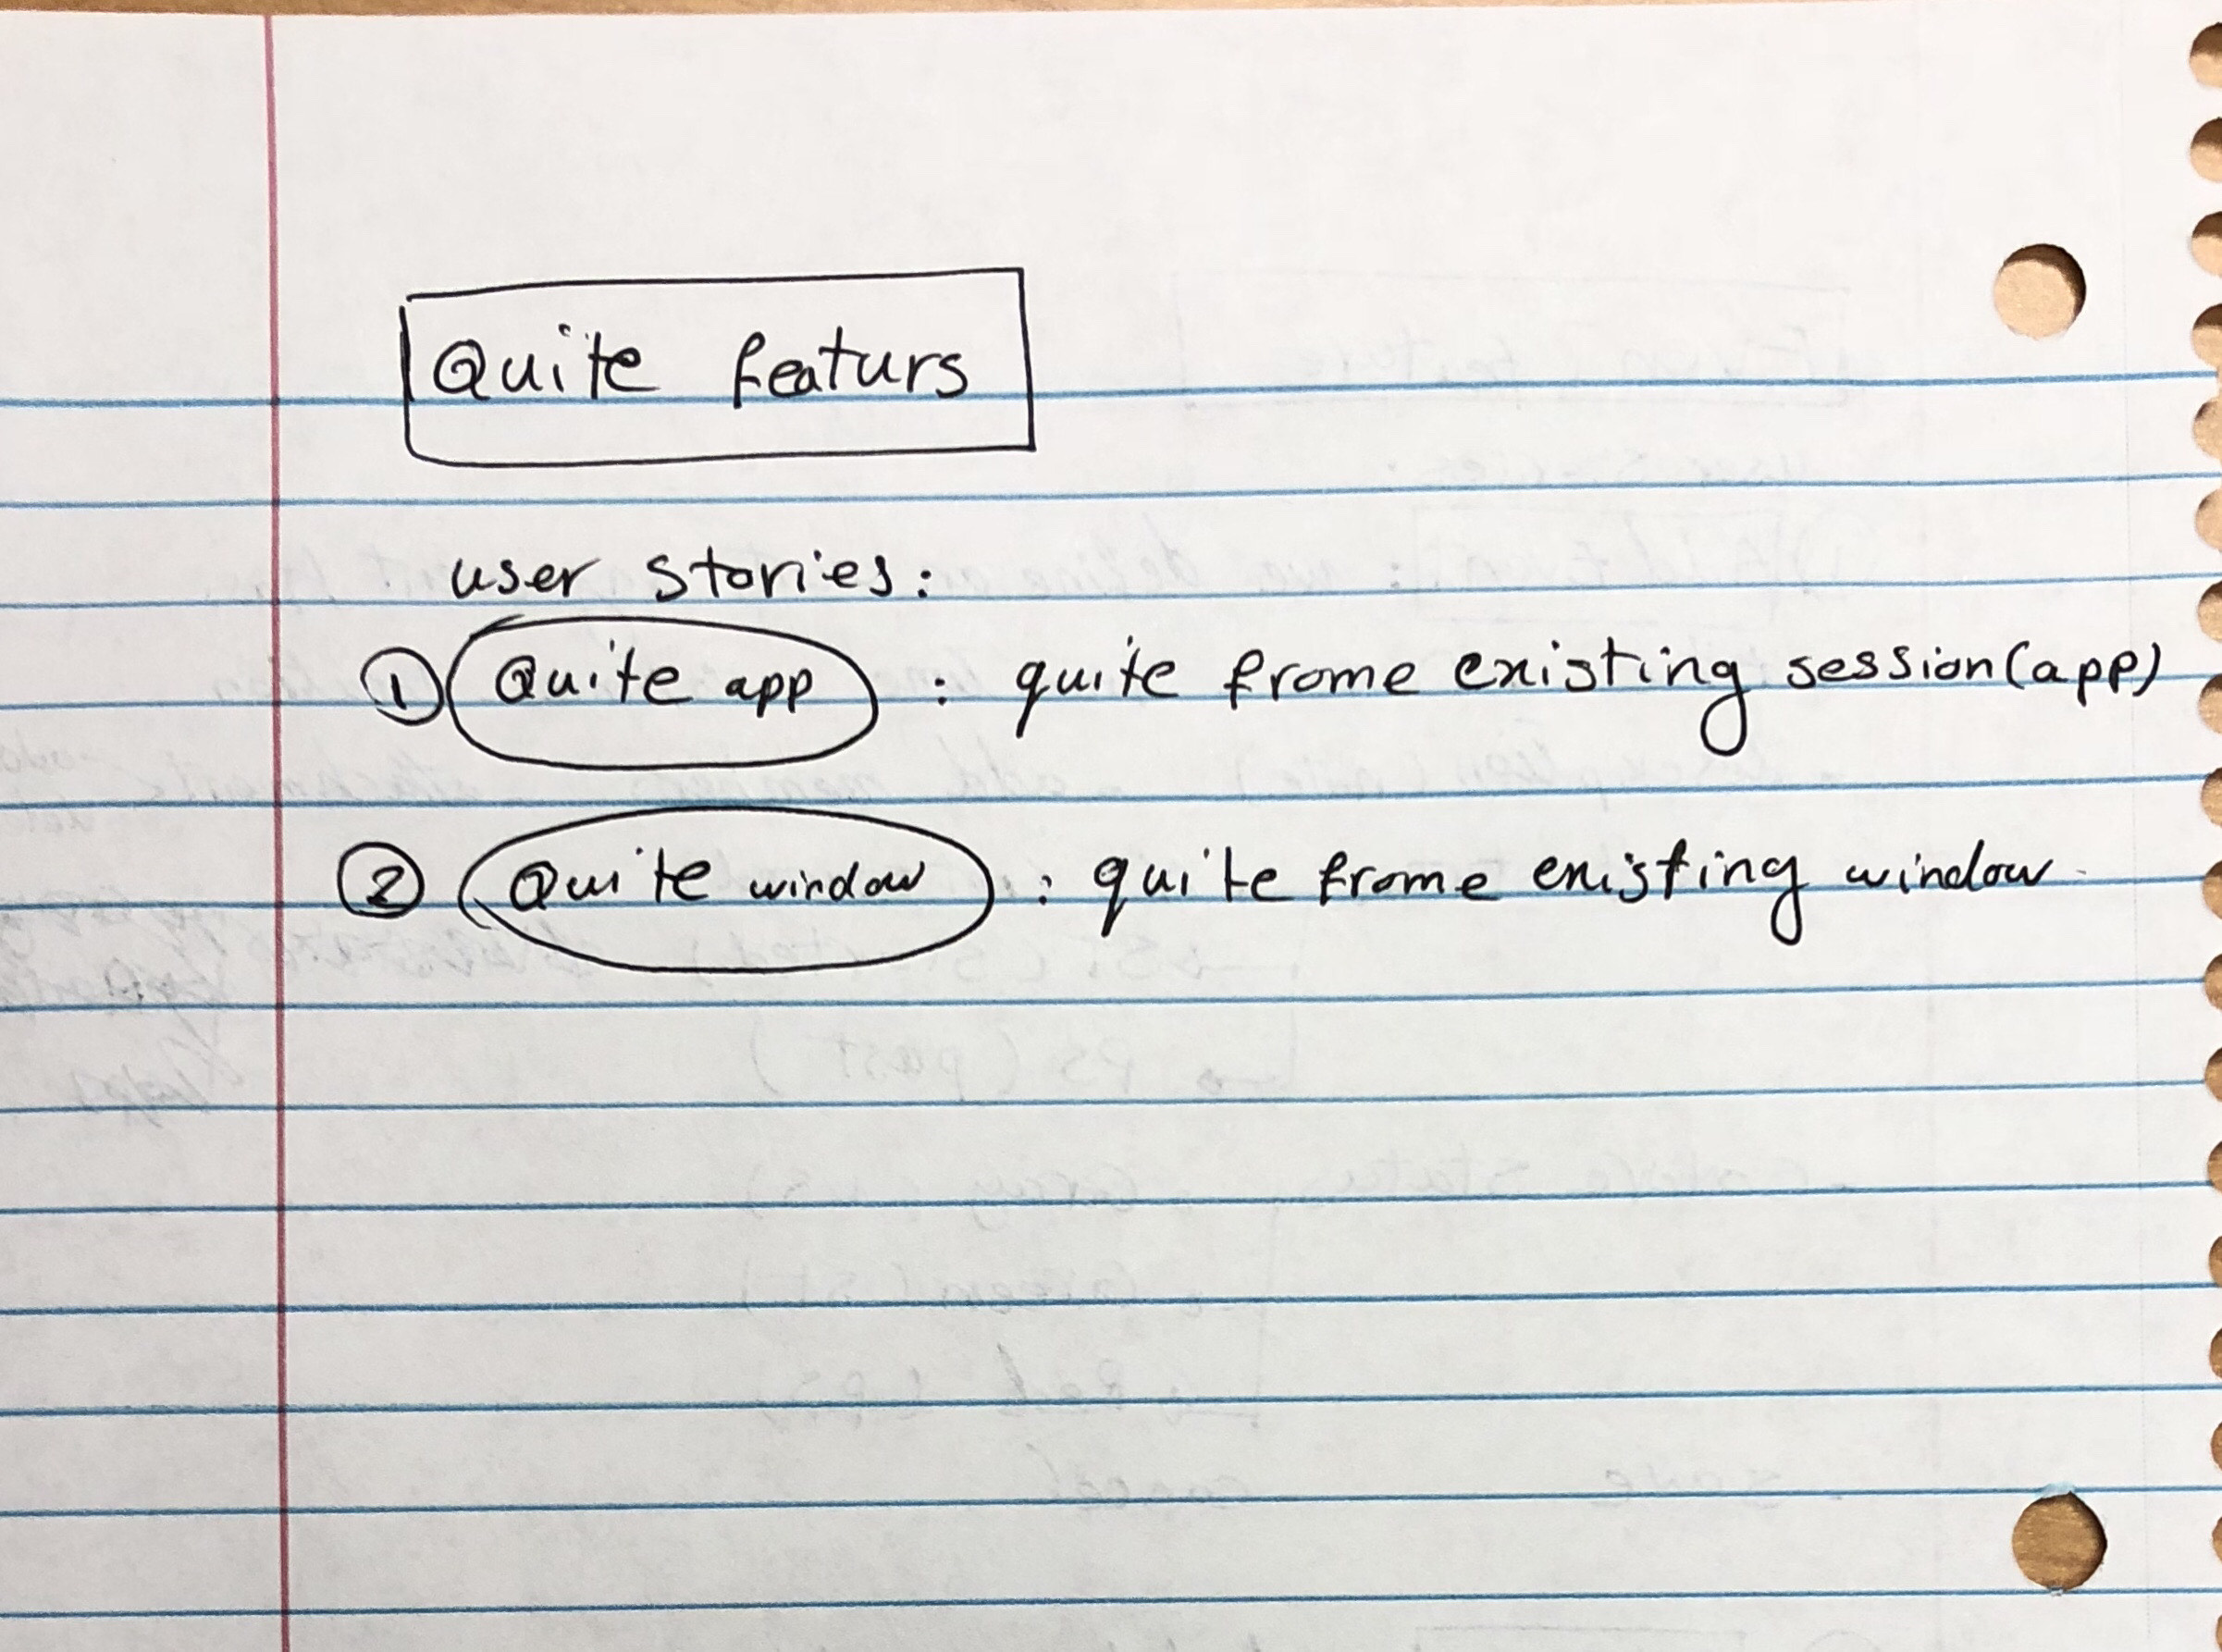 Quite featurs
user stories:
① Quite app : quite frome existing session(app)
② Quite window : quite frome existing window.